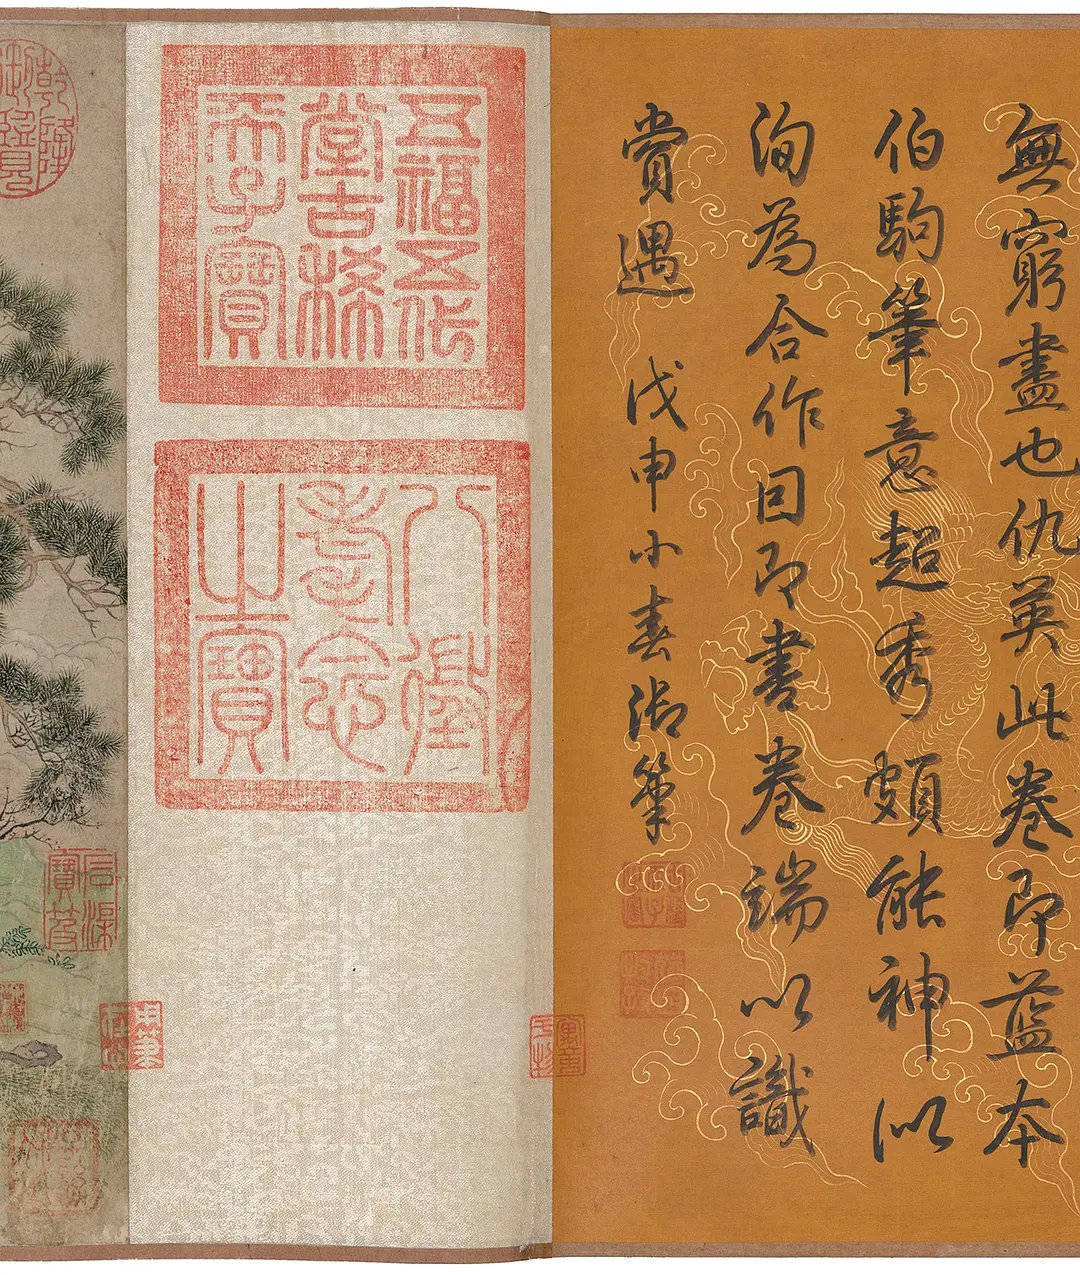 無窮盡也仇英此卷即藍本
伯駒筆意超秀頗能神似
洵為合作因即書卷端以識
賞遇
戊申小春御筆
五福五代
堂古稀
天子寶
八徵
耄念
之寶
乾隆
御覽